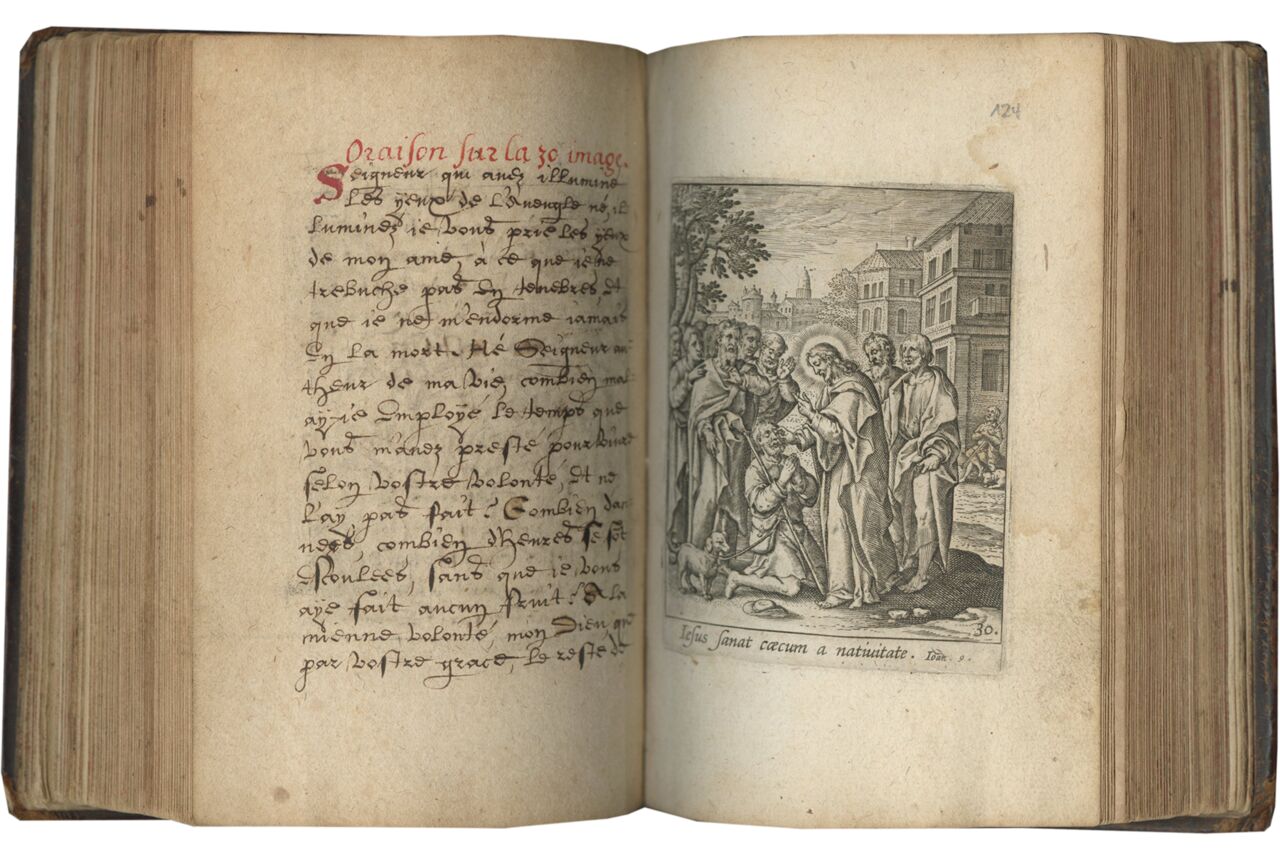 Oraison sur la 30 image.
Seigneur qui auez illumine
les yeux de l'Aueugle né, il
luminez ie vous prie les yeux
de mon ame, à ce que ie ne
trebuche pas en tenebres et
que ie ne m'endorme iamais
en la mort. Hé Seigneur au
theur de ma vie, combien mal
ay ie employé le temps que
vous m'auez presté pour viure
selon vostre volonté, et ne
l'ay pas fait? Combien dan
nees, combien d'heures se sōt
escoulees, sans que ie vous
aye fait aucun fruit? A la
mienne volonté, mon Dieu que
par vostre grace, le reste de
124
30.
Iesus sanat cœcum a natiuitate. Ioan. 9.